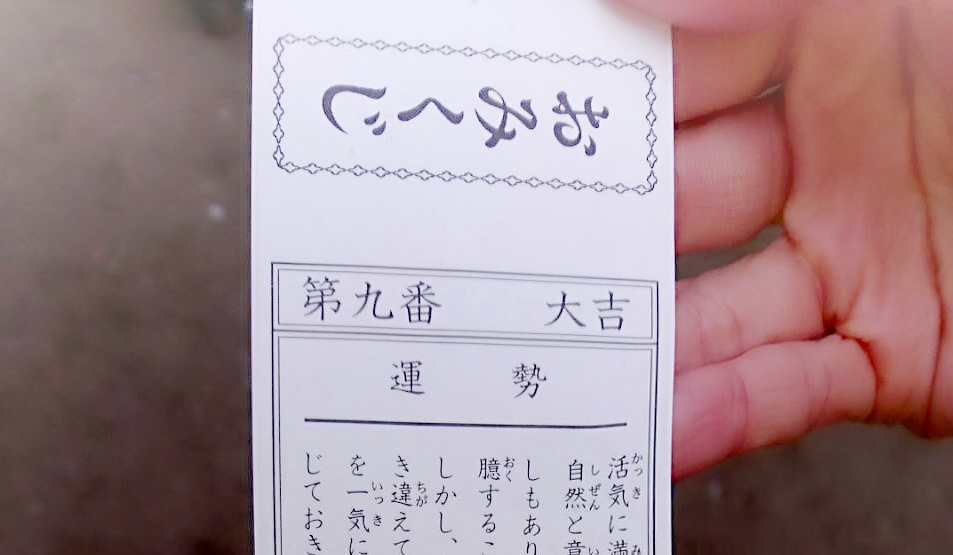 おみくじ
第九番 大吉
運勢
活気に満
自然と意
しもあり
臆するこ
しかし、
き違えて
を一気に
じておき